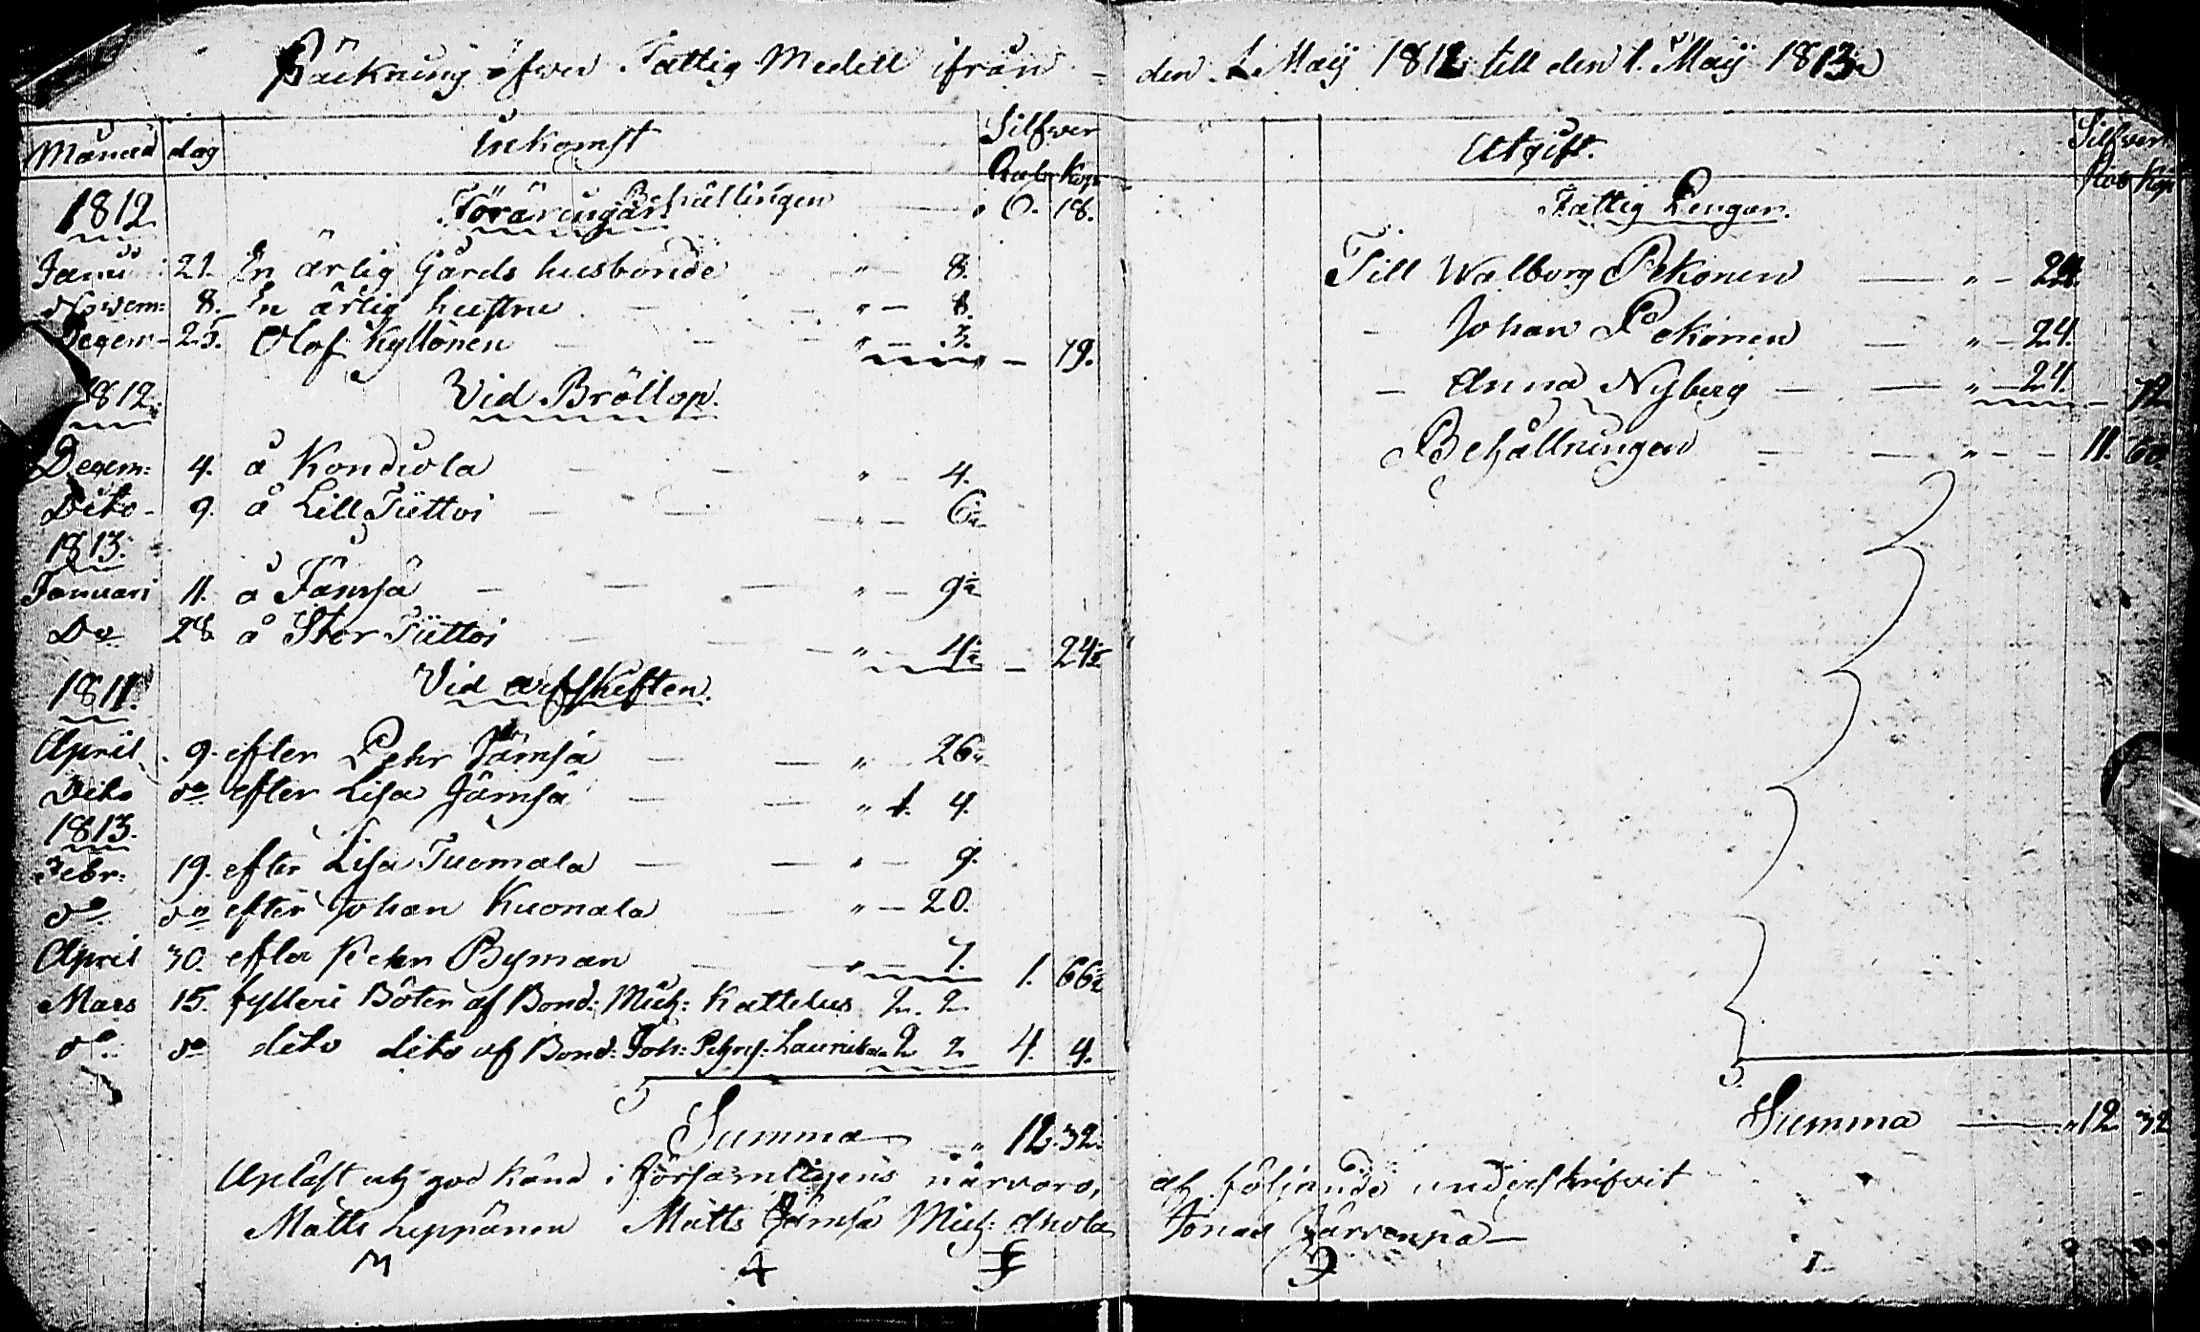 Räckning öfwer Fattig Medell ifrån den 1. Maÿ 1812 till den 1. Maÿ 1813
Månad dag Inkomst Silfwer
Rub Kop
1812 Behållingen 6. 18.
Föräringar.
Janu: 21. En ärlig Gårds husbonde " — 8.
Nowem: 8. En ärlig hustru " — 8.
Decem- 25. Olof Kyllönen " — 3. — 19.
1812. Vid Bröllop.
Decem: 4. å Kondiola " — 4.
Dito- 9. å Lill Tüttoi " — 6½
1813.
Januari 11. å Jämsä " — 9½
Do 28 å Stor Tüttoi " — 4½ — 24½
1811. Vid arfskiften.
April 9. efter Pehr Jämsä " 26½
Dito do efter Lisa Jämsä " 1. 4.
1813.
Febr: 19. efter Lisa Tuomala " — 9.
do do efter Johan Kuonala " — 20.
April 30. efter Pehr Byman " — 7. 1. 66½
Mars 15. fylleri Böter af Bond: Mich: Kattelus 2. 2.
do do dito dito af Bond: Joh: Pehrs: 2 2 4. 4.
Summa " 12. 32.
Upläst och god känd i Församligens närvaro, af följande underskrifvit
Matts Leppänen Matts Jämsä Mich: Ahola Jonas Järvenpä
Utgift. Silfwer
Rub Kop
Fattig Pengar.
Till Walborg Pekonen — " — 24.
- Johan Pekonen — " — 24.
- Anna Nyberg — " — 24. — 72
Behållningen — " — 11. 60.
Summa — " 12 32